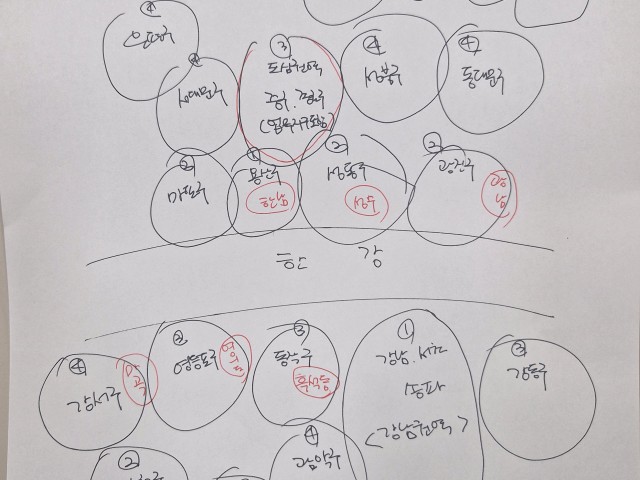 ④
은평구
④
서대문구
③
도심권역
중구.종로구
④
성북구
④
동대문구
②
마포구
①
용산구
한남
②
성동구
성수
②
광진구
광남
한 강
④
강서구
마곡
②
영등포구
여의도
③
동작구
흑석동
①
강남.서초
송파
<강남권역>
③
강동구
④
관악구
②